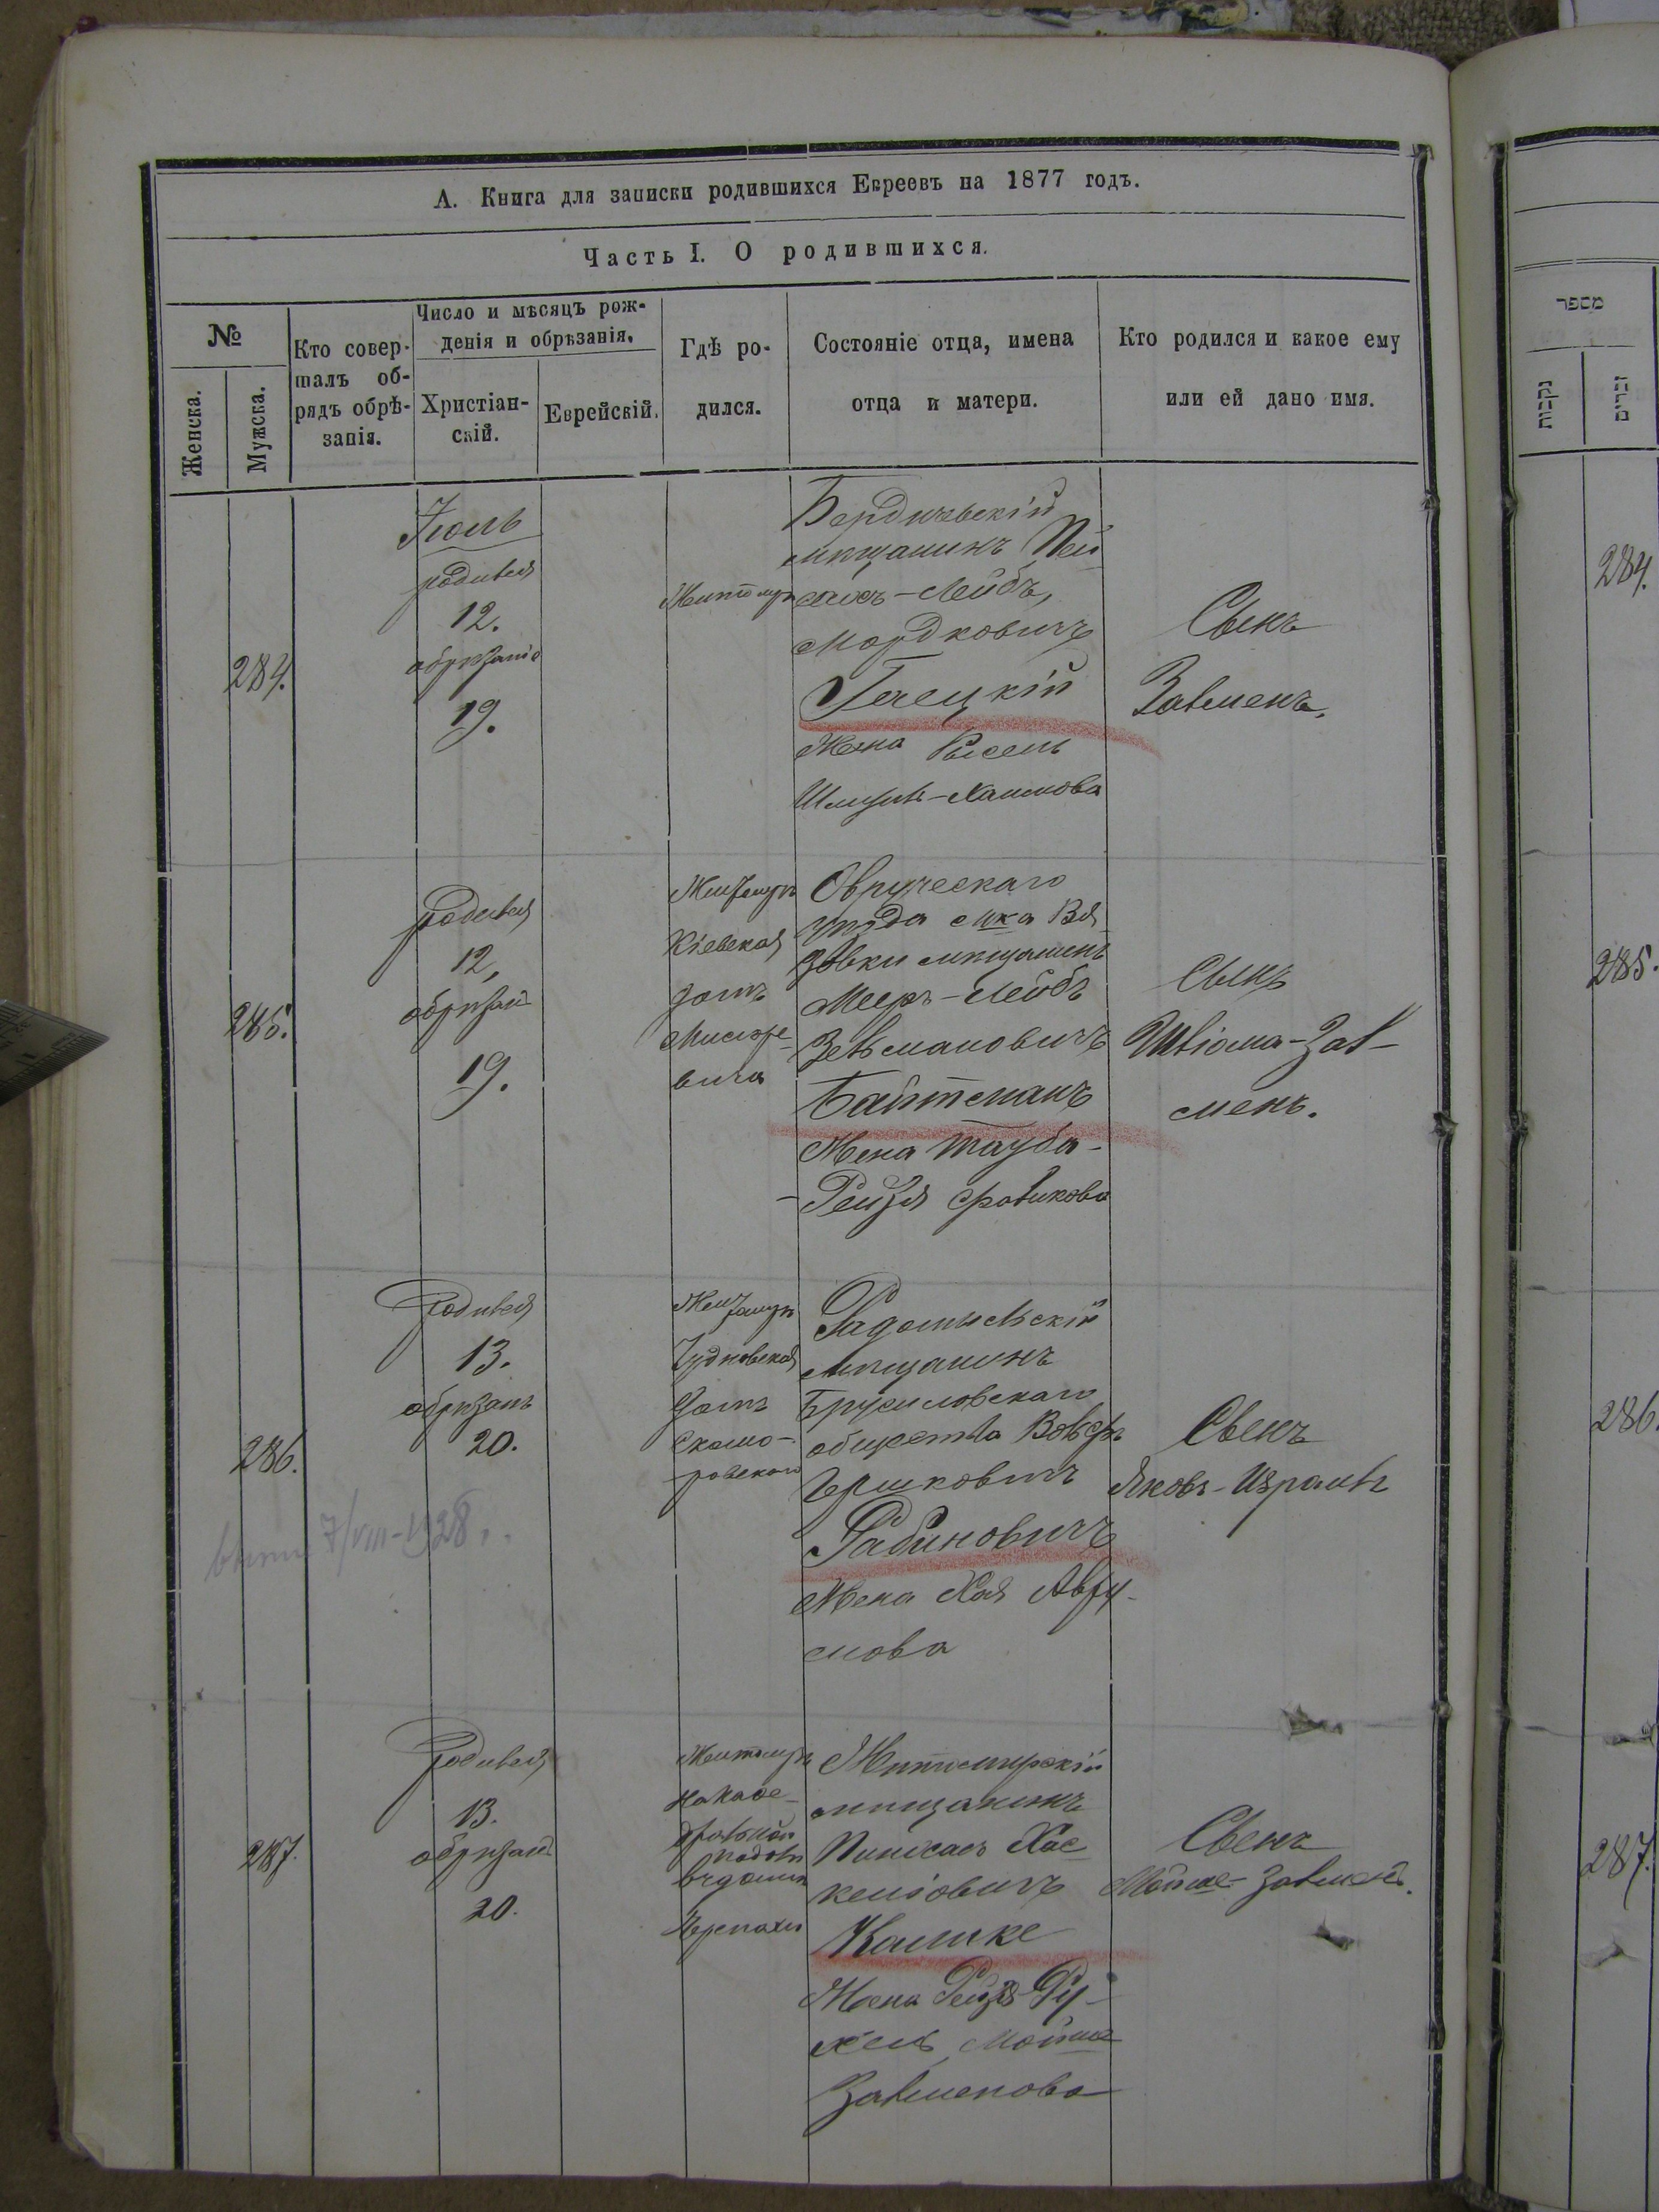 А. Книга для записки родившихся Евреевъ на 1877 годъ.
Часть I. О родившихся.
№
Женска.
Мужска.
Кто совер-
шалъ об-
рядъ обрѣ-
занія.
Число и мѣсяцъ рож-
денія и обрѣзанія.
Христіан-
скій.
Еврейскій.
Гдѣ ро-
дился.
Состояніе отца, имена
отца и матери.
Кто родился и какое ему
или ей дано имя.
284.
Іюль
родился
12.
обрѣзаніе
19.
Житомиръ
Бердичевскій
мѣщанинъ
Лейбъ,
Мордковичъ
Жена Рысель
Хаимова
Сынъ
Залменъ.
285.
родился
12,
обрѣзан
19.
Житомиръ
Кіевская
домъ
вича
Овручскаго
уѣзда мка
мѣщанинъ
Мееръ-Лейбъ
Зельмановичъ
Байтманъ
Жена Тауба-
-Рейзя Фроликова
Сынъ
Зал-
менъ.
286.
Родился
13.
обрѣзанъ
20.
Житомиръ
Чудновская
домъ
Скомо-
ровскаго
Радомысльскій
мѣщанинъ
Брусиловскаго
общества Вольфъ
Гершковичъ
Рабиновичъ
Жена Хая Авру-
мова
Сынъ
Яковъ-Израиль
7/VIII-1928
287.
Родился
13.
обрѣзанъ
20.
Житомиръ
на Кафе-
дральной
Житомирскій
мѣщанинъ
Пинхасъ Хас
келіовичъ
Жена Рейзя-Ру-
хель Мойше
Залменова
Сынъ
Мойше-Залменъ.
מספר
נקבות
זכרים
284.
285.
286.
287.